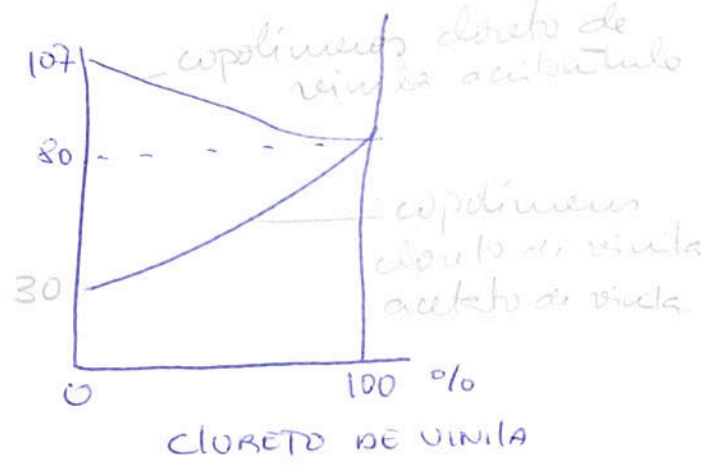 107
copolímeros cloreto de
vinila acrilonitrilo
80
copolímeros
cloreto de vinila
acetato de vinila
30
0
100 %
CLORETO DE VINILA